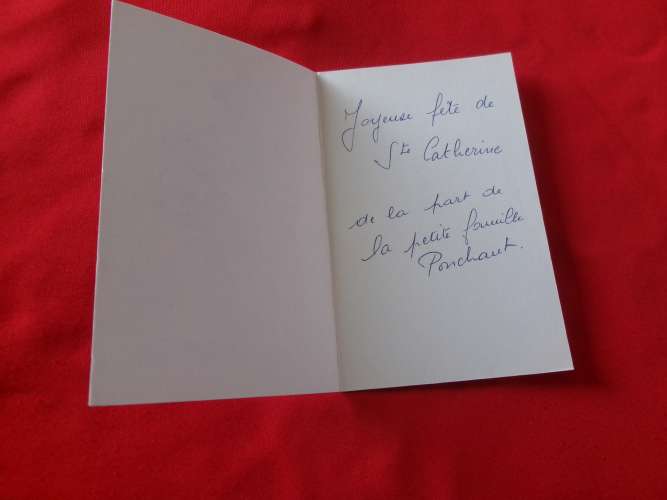 Joyeuse fête de
Ste Catherine
de la part de
la petite famille
Ponchaut.